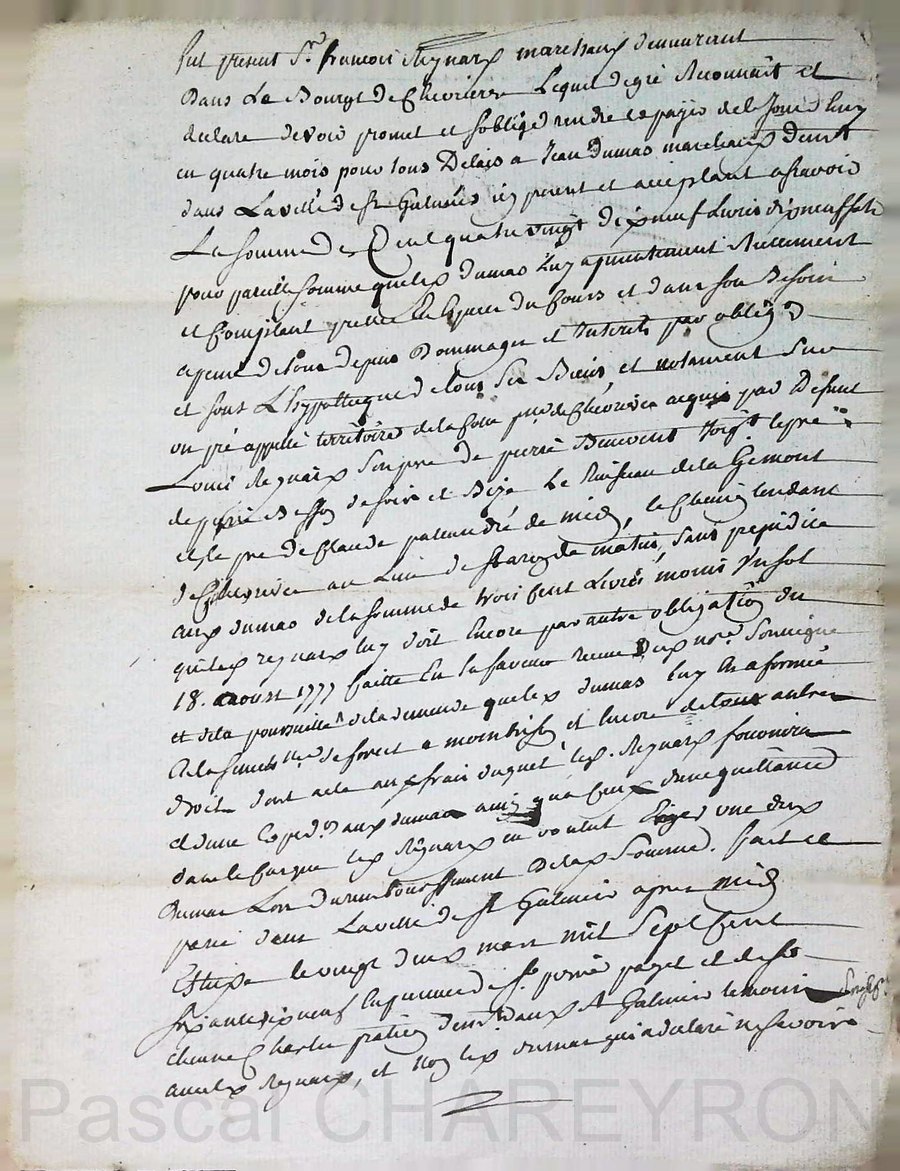 fut présent Sr. francois Reynard marchand demeurant
dans Le Bourgt de Chevrieres Lequel degré Reconnoit et
declare devoir promet et soblige rendre et payer de ce Jourdhuy
en quatre mois pour tous Delais a Jean dumas marchand demt
dans Laville de St Galmier icy present et acceptant asavoir
La somme de Cent quatre vingt dixneuf Livres dixneuf sols
pour pareille somme que led dumas Luy a presentement Reellement
et Comptant prettée En Especes du Cours et dans son Besoin
apeine de tous depens Dommages et Interets par obligon
et sous L'hypotteque de tous ses Biens et notament sur
un pré appellé territoire de la parr de Chevrieres acquis par Defunt
Louis Reynard son pere de pierre
de pierre de soir et Bize Le Ruisseau de la Gimont
et le pré de Claude de midy, le Chemin tendant
de Chevrieres au Lieu de de matin, sans prejudice
aud dumas de la somme de trois cent Livres moins Un sol
que led reynard luy doit Encore par autre obligation du
18. aoust 1777 faitte En sa faveur recue Dud nre. Soussigné
et de la poursuitte de la demende que led dumas luy En a formée
En la de forest a montbrison et Encore de tous autres
droits dont acte aux frais duquel led. Reynard fournira
et d'une aud dumas ainsy que Ceux d'une quittance
dans le Cas que led Reynard en voulut Exiger une dud
Dumas Lors du remboursement De lad Somme. fait et
passé dans Laville de St Galmier apres midy
Estude le vingt deux mars mil Sept Cent
soixante dixneuf En presence de Sr. pierre payet et de Sr
Etienne Charles praticien demt. Aud St Galmier temoins soussignés
avec led Reynard, et non led dumas qui a declaré ne Savoir
Pascal CHAREYRON